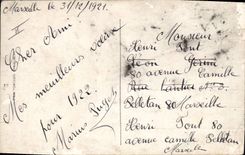 Marseille le 31/12/1921.
II
Cher Ami
Mes meilleurs vœux
pour 1922.
Marius
Monsieur
Henri Pont
80 avenue Camille
Pelletan 80 Marseille
Henri Pont 80
avenue camille Pelletan
Marseille